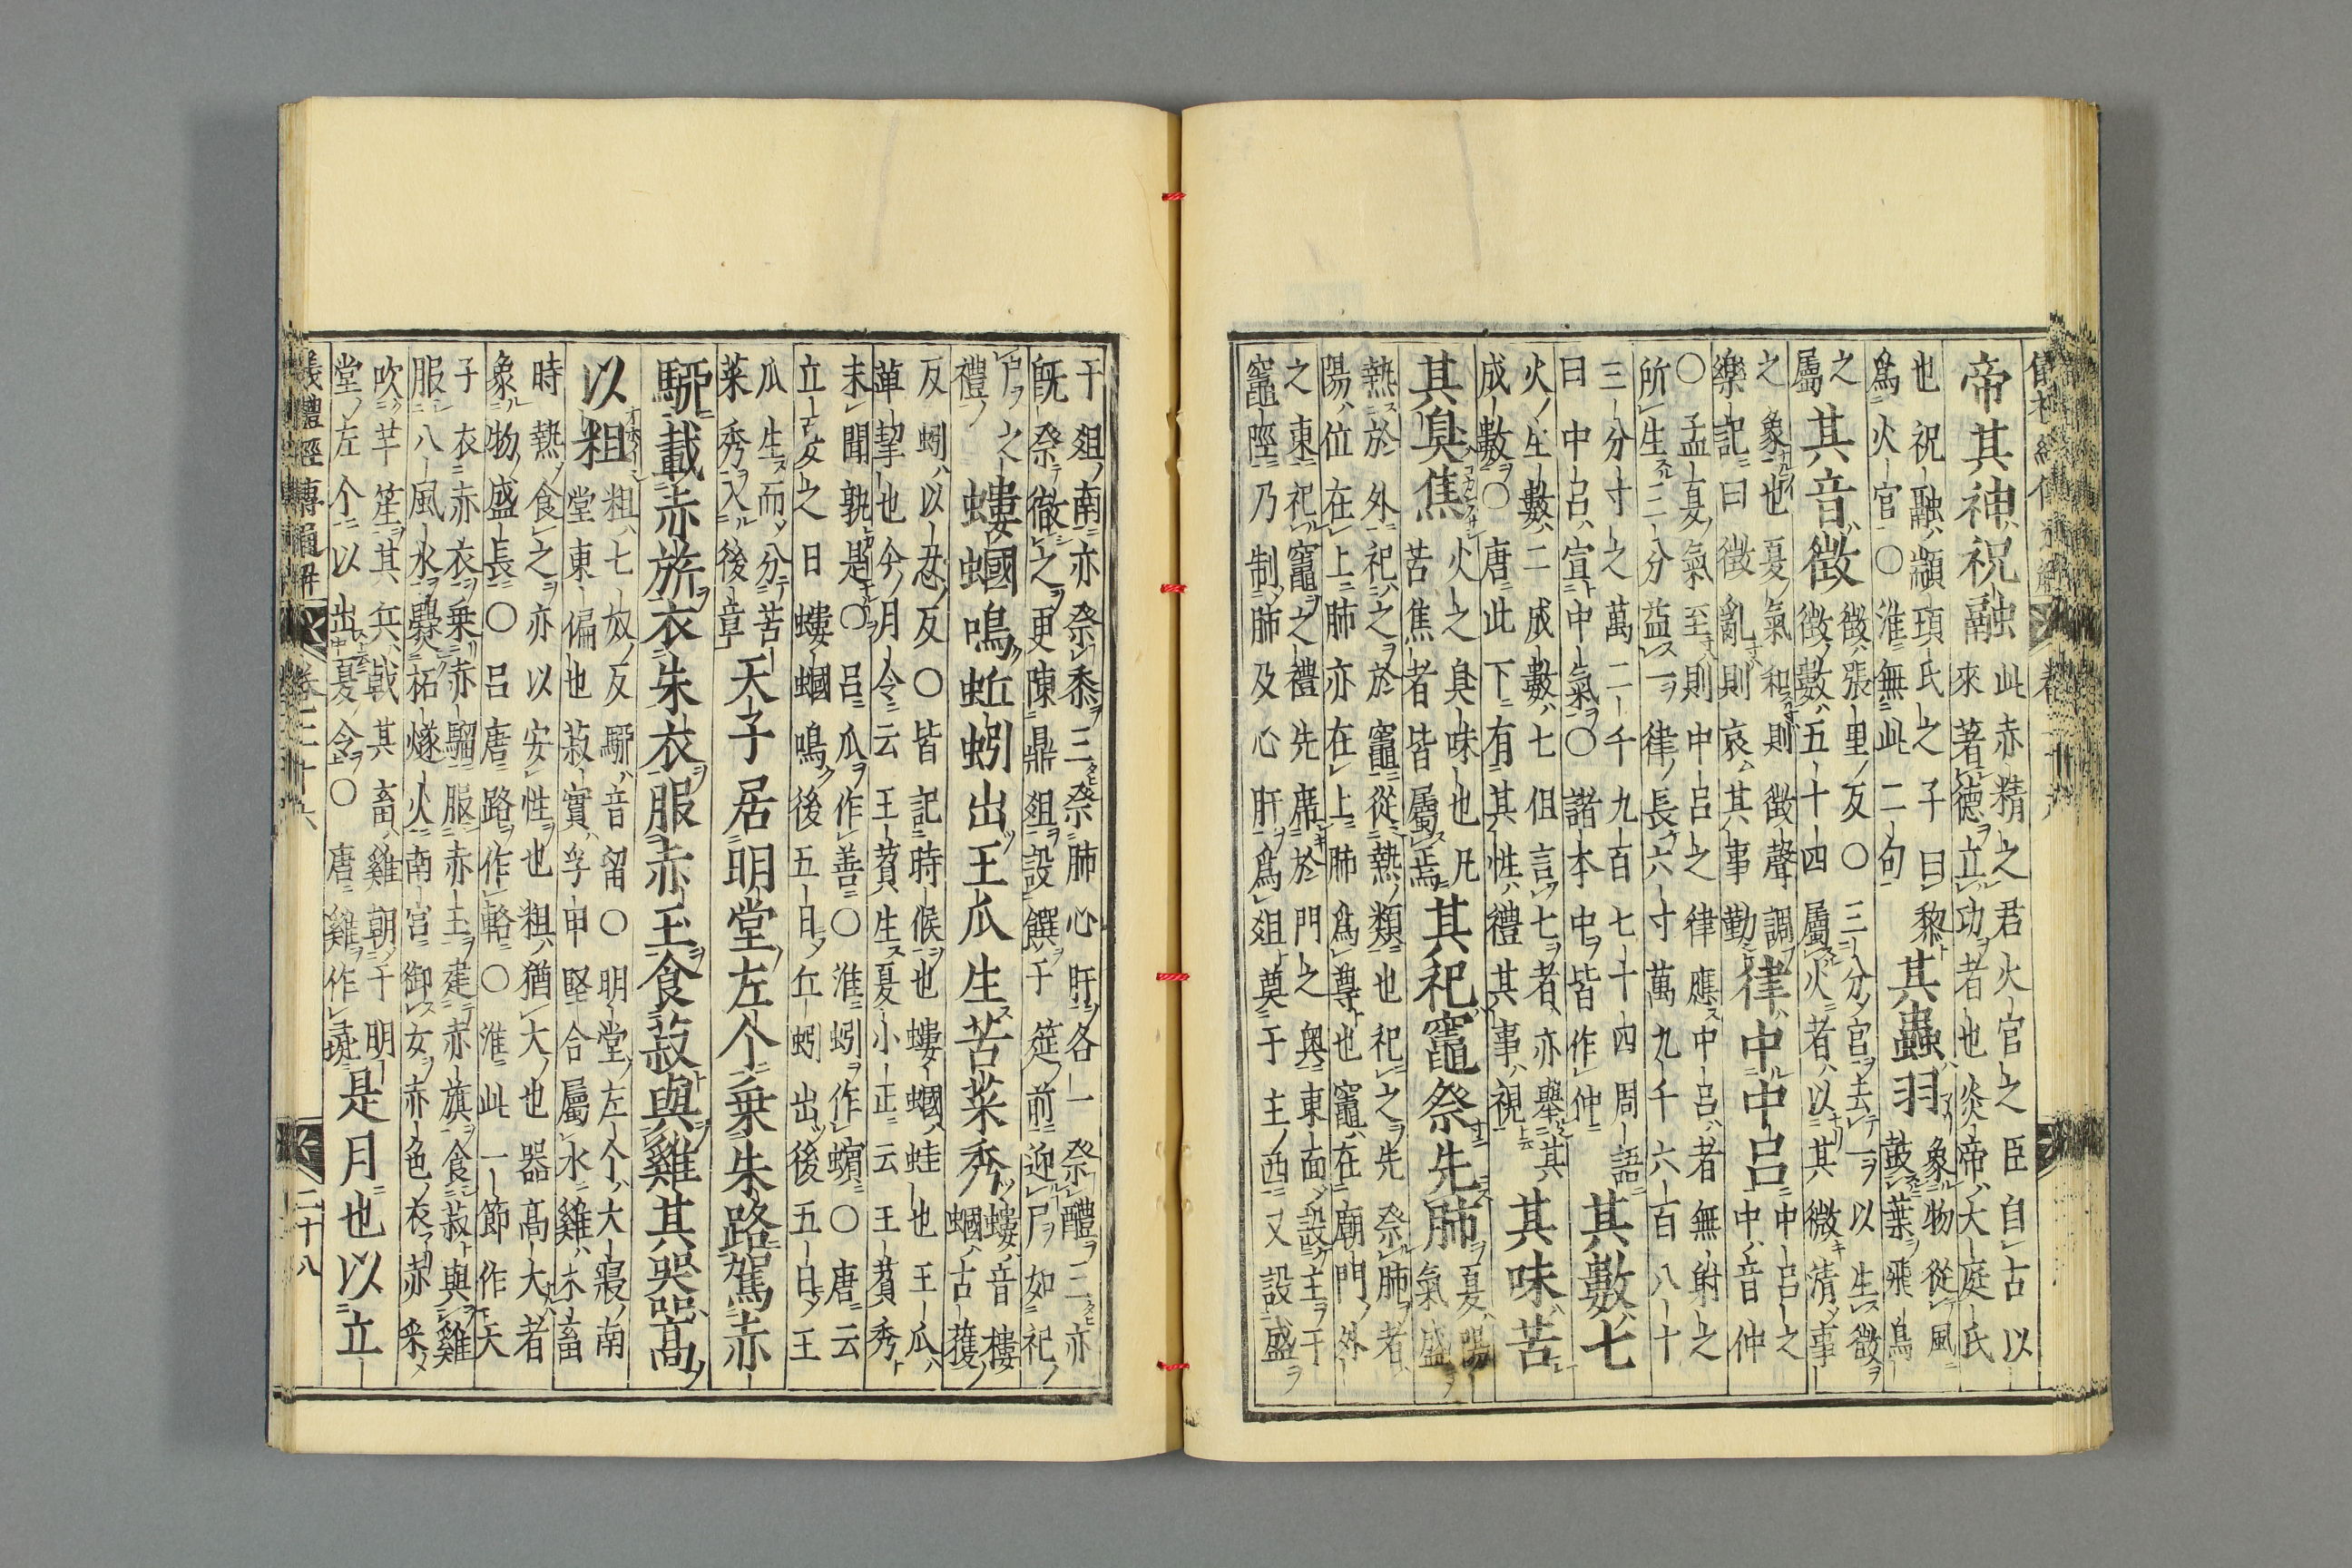 帝其神祝融
此赤精之君火官之臣自古以
來著德立功者也炎帝大庭氏
也祝融顓頊氏之子曰黎
爲火官○淮無此二句
其蟲羽
象物從風
鼓葉飛鳥
之
屬
其音徵
徵張里反○三分宮去一以生徵
徵數五十四屬火者以其微清事
之象也夏氣和則徵聲調
樂記曰徵亂則哀其事勤
律中中呂
中呂之
中音仲
○孟夏氣至則中呂之律應中呂者無射之
所生三分益一律長六寸萬九千六百八十
三分寸之萬二千九百七十四周語
曰中呂宣中氣○諸本中皆作仲
其數七
火生數二成數七但言七者亦舉其
成數○唐此下有其性禮其事視
其味苦
其臭焦
火之臭味也凡
苦焦者皆屬焉
其祀竈祭先肺
夏陽
氣盛
熱於外祀之於竈從熱類也祀之先祭肺者
陽位在上肺亦在上肺爲尊也竈在廟門外
之東祀竈之禮先席於門之奧東面設主于
竈陘乃制肺及心肝爲俎奠于主西又設盛
于俎南亦祭黍三祭肺心肝各一祭醴三亦
既祭徹之更陳鼎俎設饌于筵前迎尸如祀
尸之
禮
螻蟈鳴蚯蚓出王瓜生苦菜秀
螻音樓
蟈古獲
反蚓以忍反○皆記時候也螻蟈蛙也王瓜
萆挈也今月令云王萯生夏小正云王萯秀
未聞孰是○呂瓜作善○淮蚓作螾○唐云
立夏之日螻蟈鳴後五日丘蚓出後五日王
瓜生而分苦
菜秀入後章
天子居明堂左个乘朱路駕赤
駵載赤旂衣朱衣服赤玉食菽與雞其器高
以粗
粗七奴反駵音留○明堂左个大寢南
堂東偏也菽實孚甲堅合屬水雞木畜
時熱食之亦以安性也粗猶大也器高大者
象物盛長○呂唐路作輅○淮此一節作天
子衣赤衣乘赤騮服赤玉建赤旗食菽與雞
服八風水爨柘燧火南宮御女赤色衣赤采
吹竽笙其兵戟其畜雞朝于明
堂左个以出夏令○唐雞作
是月也以立
儀禮經傳通解 卷二十六 二十八